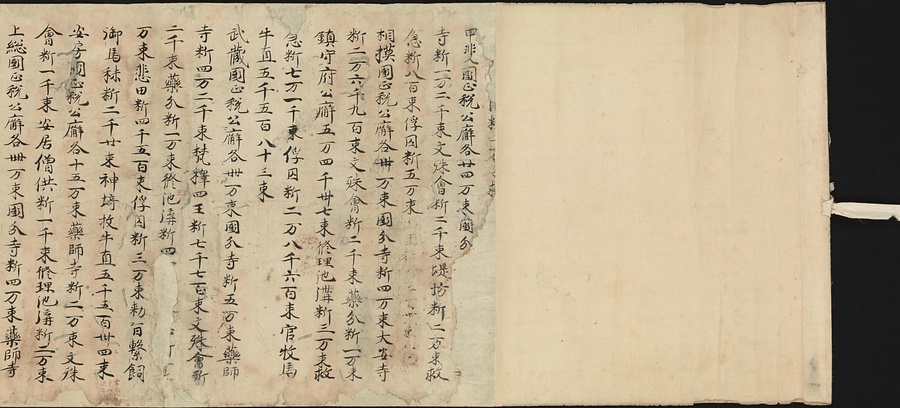 甲斐國正税公廨各廿四万束國分
寺新二万二千束文殊會新二千束堤坊新二万束救
急新八百束俘囚新五万束
相摸國正税公廨各卅万束國分寺新四万束大安寺
新二万六千九百束文殊會新二千束藥分新一万束
鎮守府公廨五万四千卅七束修理池溝新三万束救
急新七万一千束俘囚新二万八千六百束官牧馬
牛直五千五百八十三束
武蔵國正税公廨各卌万束國分寺新五万束藥師
寺新四万二千束梵釋四王新七千七百束文殊會新
二千束藥分新一万束修池溝新四
万束悲田新四千五百束俘囚新三万束勅旨繋飼
御馬秣新二千廿束神埼牧牛直五千五百卅四束
安房國正税公廨各十五万束藥師寺新二万束文殊
會新一千束安居僧供新一千束修理池溝新二万束
上総國正税公廨各卌万束國分寺新四万束藥師寺